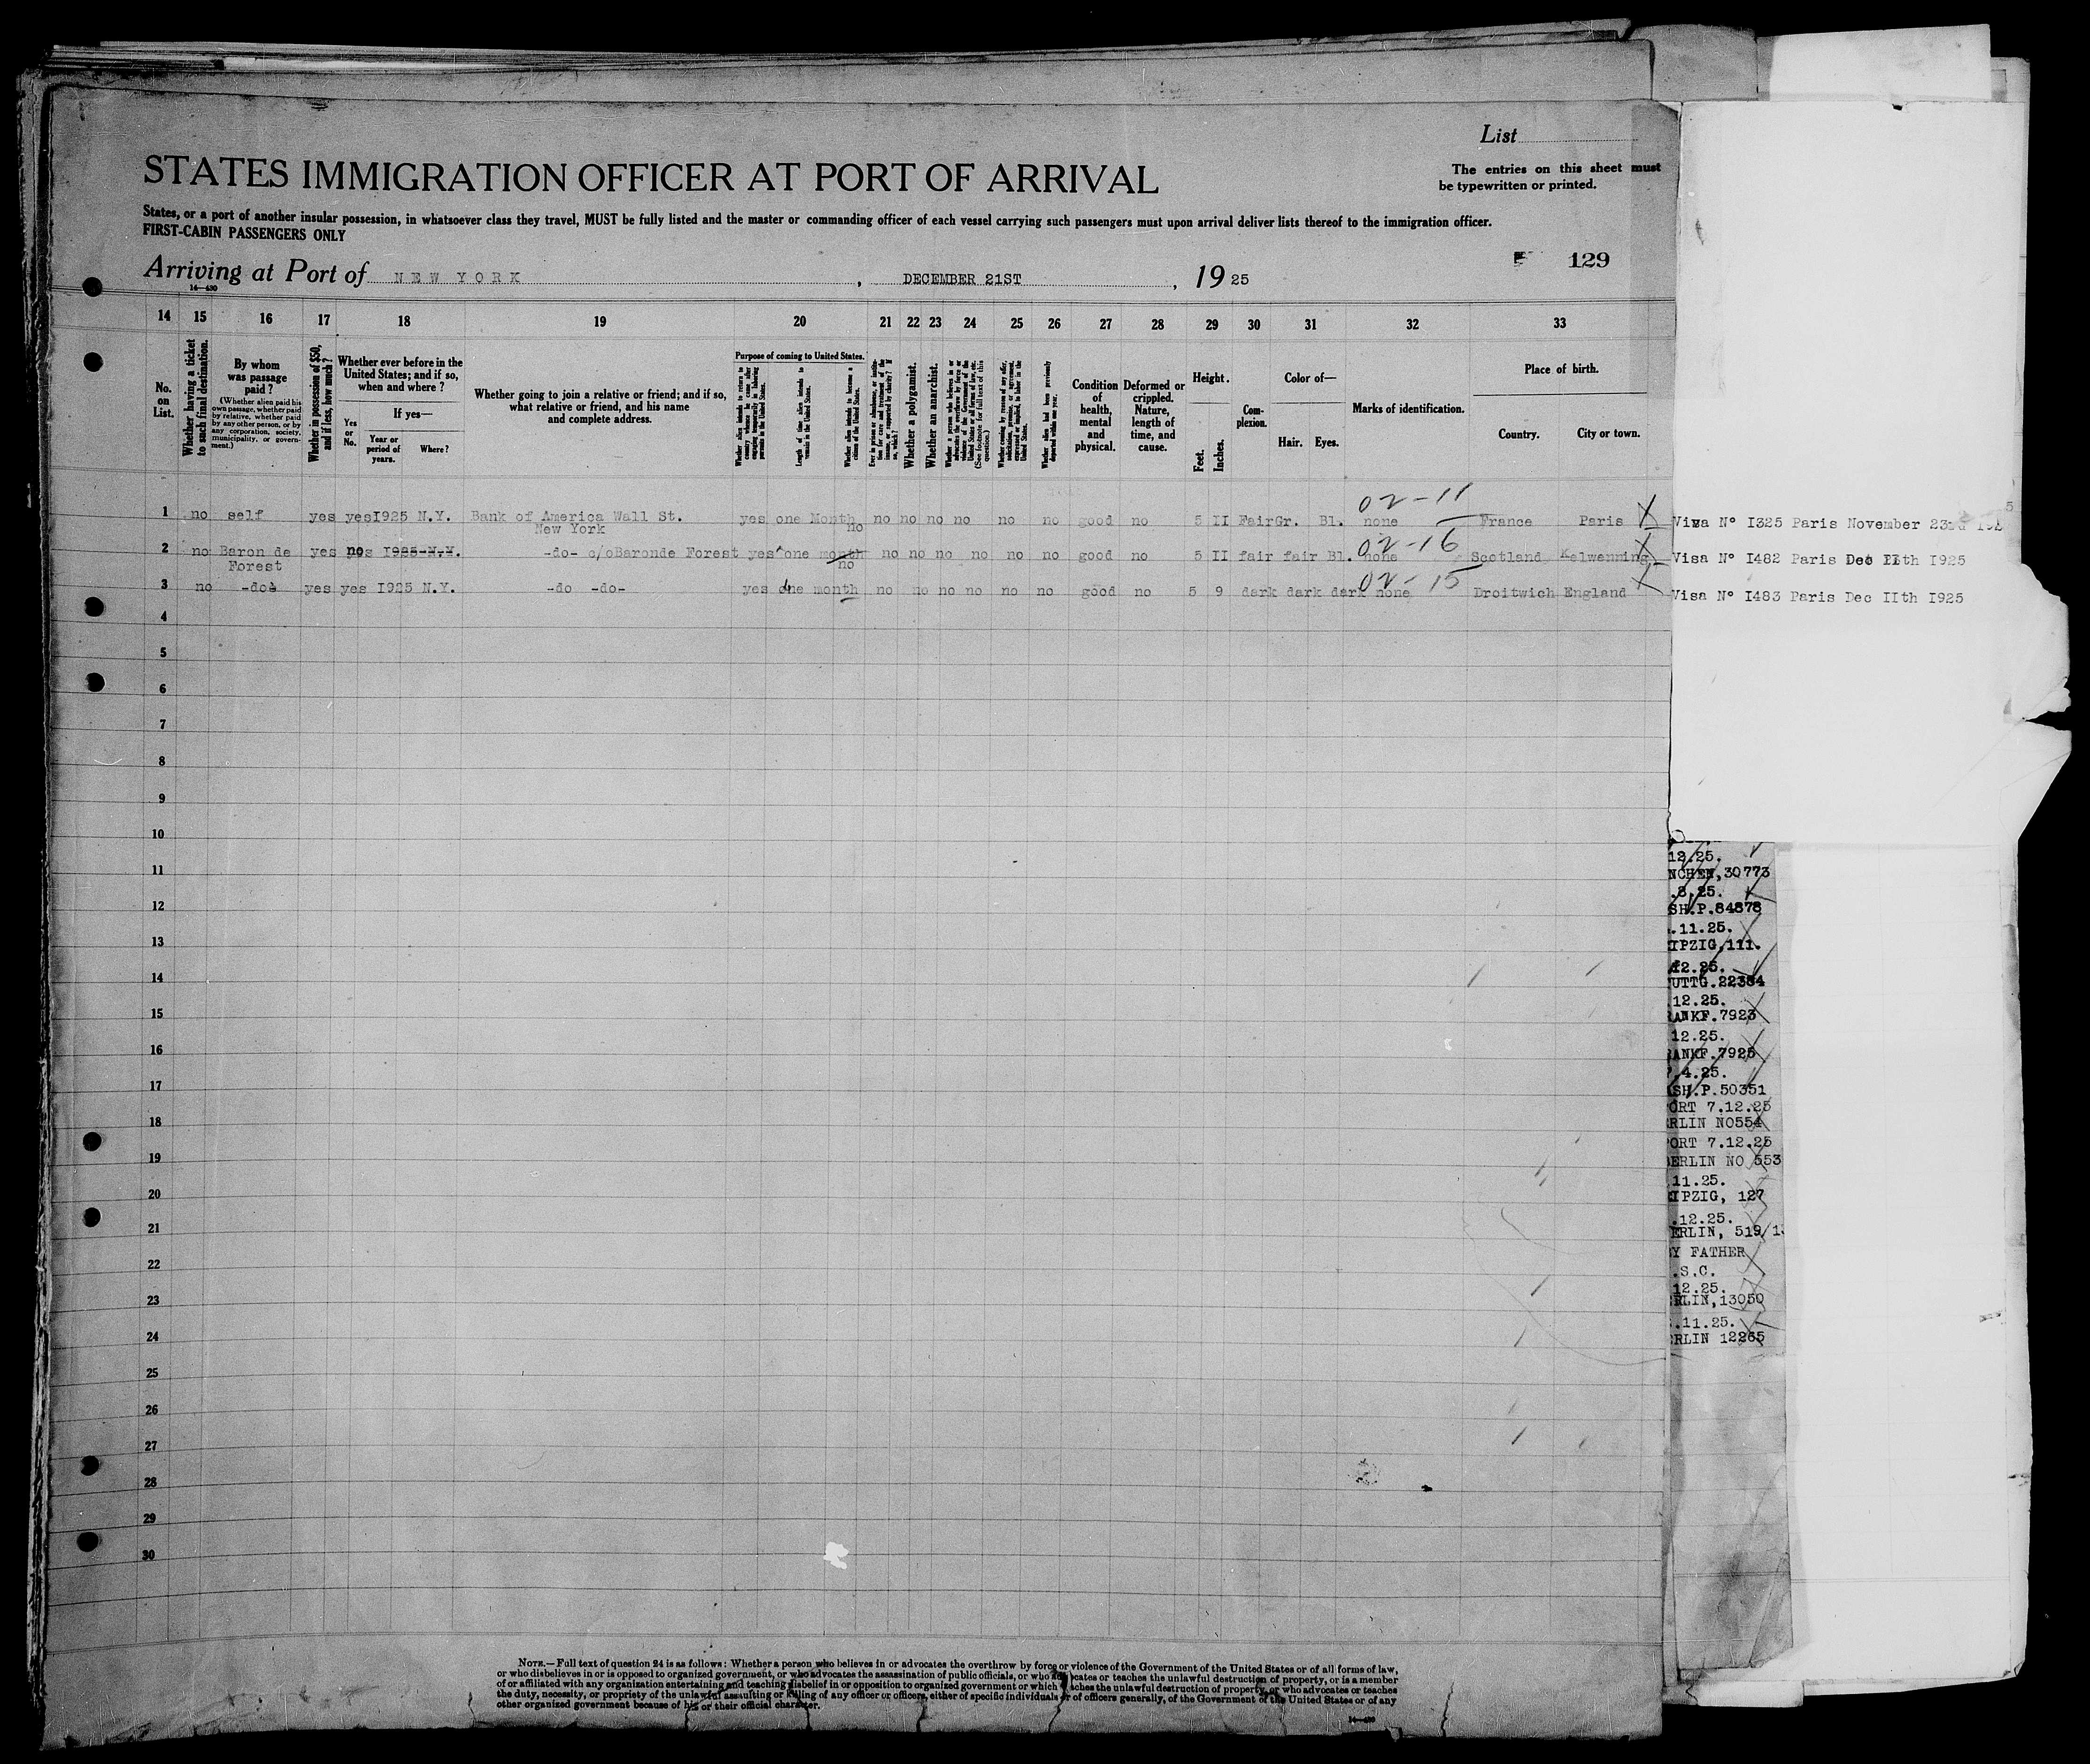 List
STATES IMMIGRATION OFFICER AT PORT OF ARRIVAL
The entries on this sheet must
be typewritten or printed.
States, or a port of another insular possession, in whatsoever class they travel, MUST be fully listed and the master or commanding officer of each vessel carrying such passengers must upon arrival deliver lists thereof to the immigration officer.
FIRST-CABIN PASSENGERS ONLY
129
Arriving at Port of NEW YORK, DECEMBER 21ST, 1925
14—430
14 15 16 17 18 19 20 21 22 23 24 25 26 27 28 29 30 31 32 33
No. on List.
Whether having a ticket to such final destination.
By whom was passage paid?
(Whether alien paid his own passage, whether paid by relative, whether paid by any other person, or by any corporation, society, municipality, or government.)
Whether in possession of $50, and if less, how much?
Whether ever before in the United States; and if so, when and where?
Yes or No.
If yes—
Year or period of years.
Where?
Whether going to join a relative or friend; and if so, what relative or friend, and his name and complete address.
Purpose of coming to United States.
Whether alien intends to return to country whence he came after engaging temporarily in laboring pursuits in the United States.
Length of time alien intends to remain in the United States.
Whether alien intends to become a citizen of the United States.
Whether a polygamist.
Whether an anarchist.
(See footnote for full text of this question.)
Condition of health, mental and physical.
Deformed or crippled. Nature, length of time, and cause.
Height.
Feet.
Inches.
Complexion.
Color of—
Hair. Eyes.
Marks of identification.
Place of birth.
Country. City or town.
02-11
1 no self yes yes I925 N.Y. Bank of America Wall St. yes one Month no no no no no no no good no 5 II Fair Gr. Bl. none France Paris Visa Nº I325 Paris November 23rd
New York
02-16
2 no Baron de yes no I925 N.Y. -do- c/oBaronde Forest yes one month no no no no no no good no 5 II fair fair Bl. none Scotland Kelwenning Visa Nº I482 Paris Dec IIth I925
Forest no
02-15
3 no -do- yes yes I925 N.Y. -do -do- yes one month no no no no no no good no 5 9 dark dark dark none Droitwich England Visa Nº I483 Paris Dec IIth I925
4
5
6
7
8
9
10
11
12
13
14
15
16
17
18
19
20
21
22
23
24
25
26
27
28
29
30
12.25.
NCHEN,30773
.8.25.
SH.P.84878
.11.25.
IPZIG,111.
12.25.
UTTG.22384
12.25.
RANKF.7923
12.25.
RANKF.7925
.4.25.
SH.P.50351
ORT 7.12.25
RLIN NO554
PORT 7.12.25
BERLIN NO 553
11.25.
IPZIG, 127
.12.25.
ERLIN, 519/1
Y FATHER
.S.C.
12.25.
RLIN,13050
.11.25.
RLIN 12265
NOTE.—Full text of question 24 is as follows: Whether a person who believes in or advocates the overthrow by force or violence of the Government of the United States or of all forms of law,
or who disbelieves in or is opposed to organized government, or who advocates the assassination of public officials, or who advocates or teaches the unlawful destruction of property, or is a member
of or affiliated with any organization entertaining and teaching disbelief in or opposition to organized government or which teaches the unlawful destruction of property, or who advocates or teaches
the duty, necessity, or propriety of the unlawful assaulting or killing of any officer or officers, either of specific individuals or of officers generally, of the Government of the United States or of any
other organized government because of his or their official character.
14—430